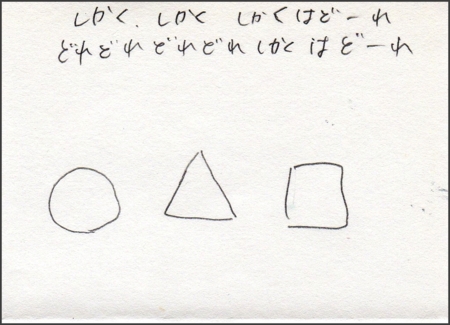 しかく、しかく しかくはどーれ
どれどれ どれどれ しかくはどーれ